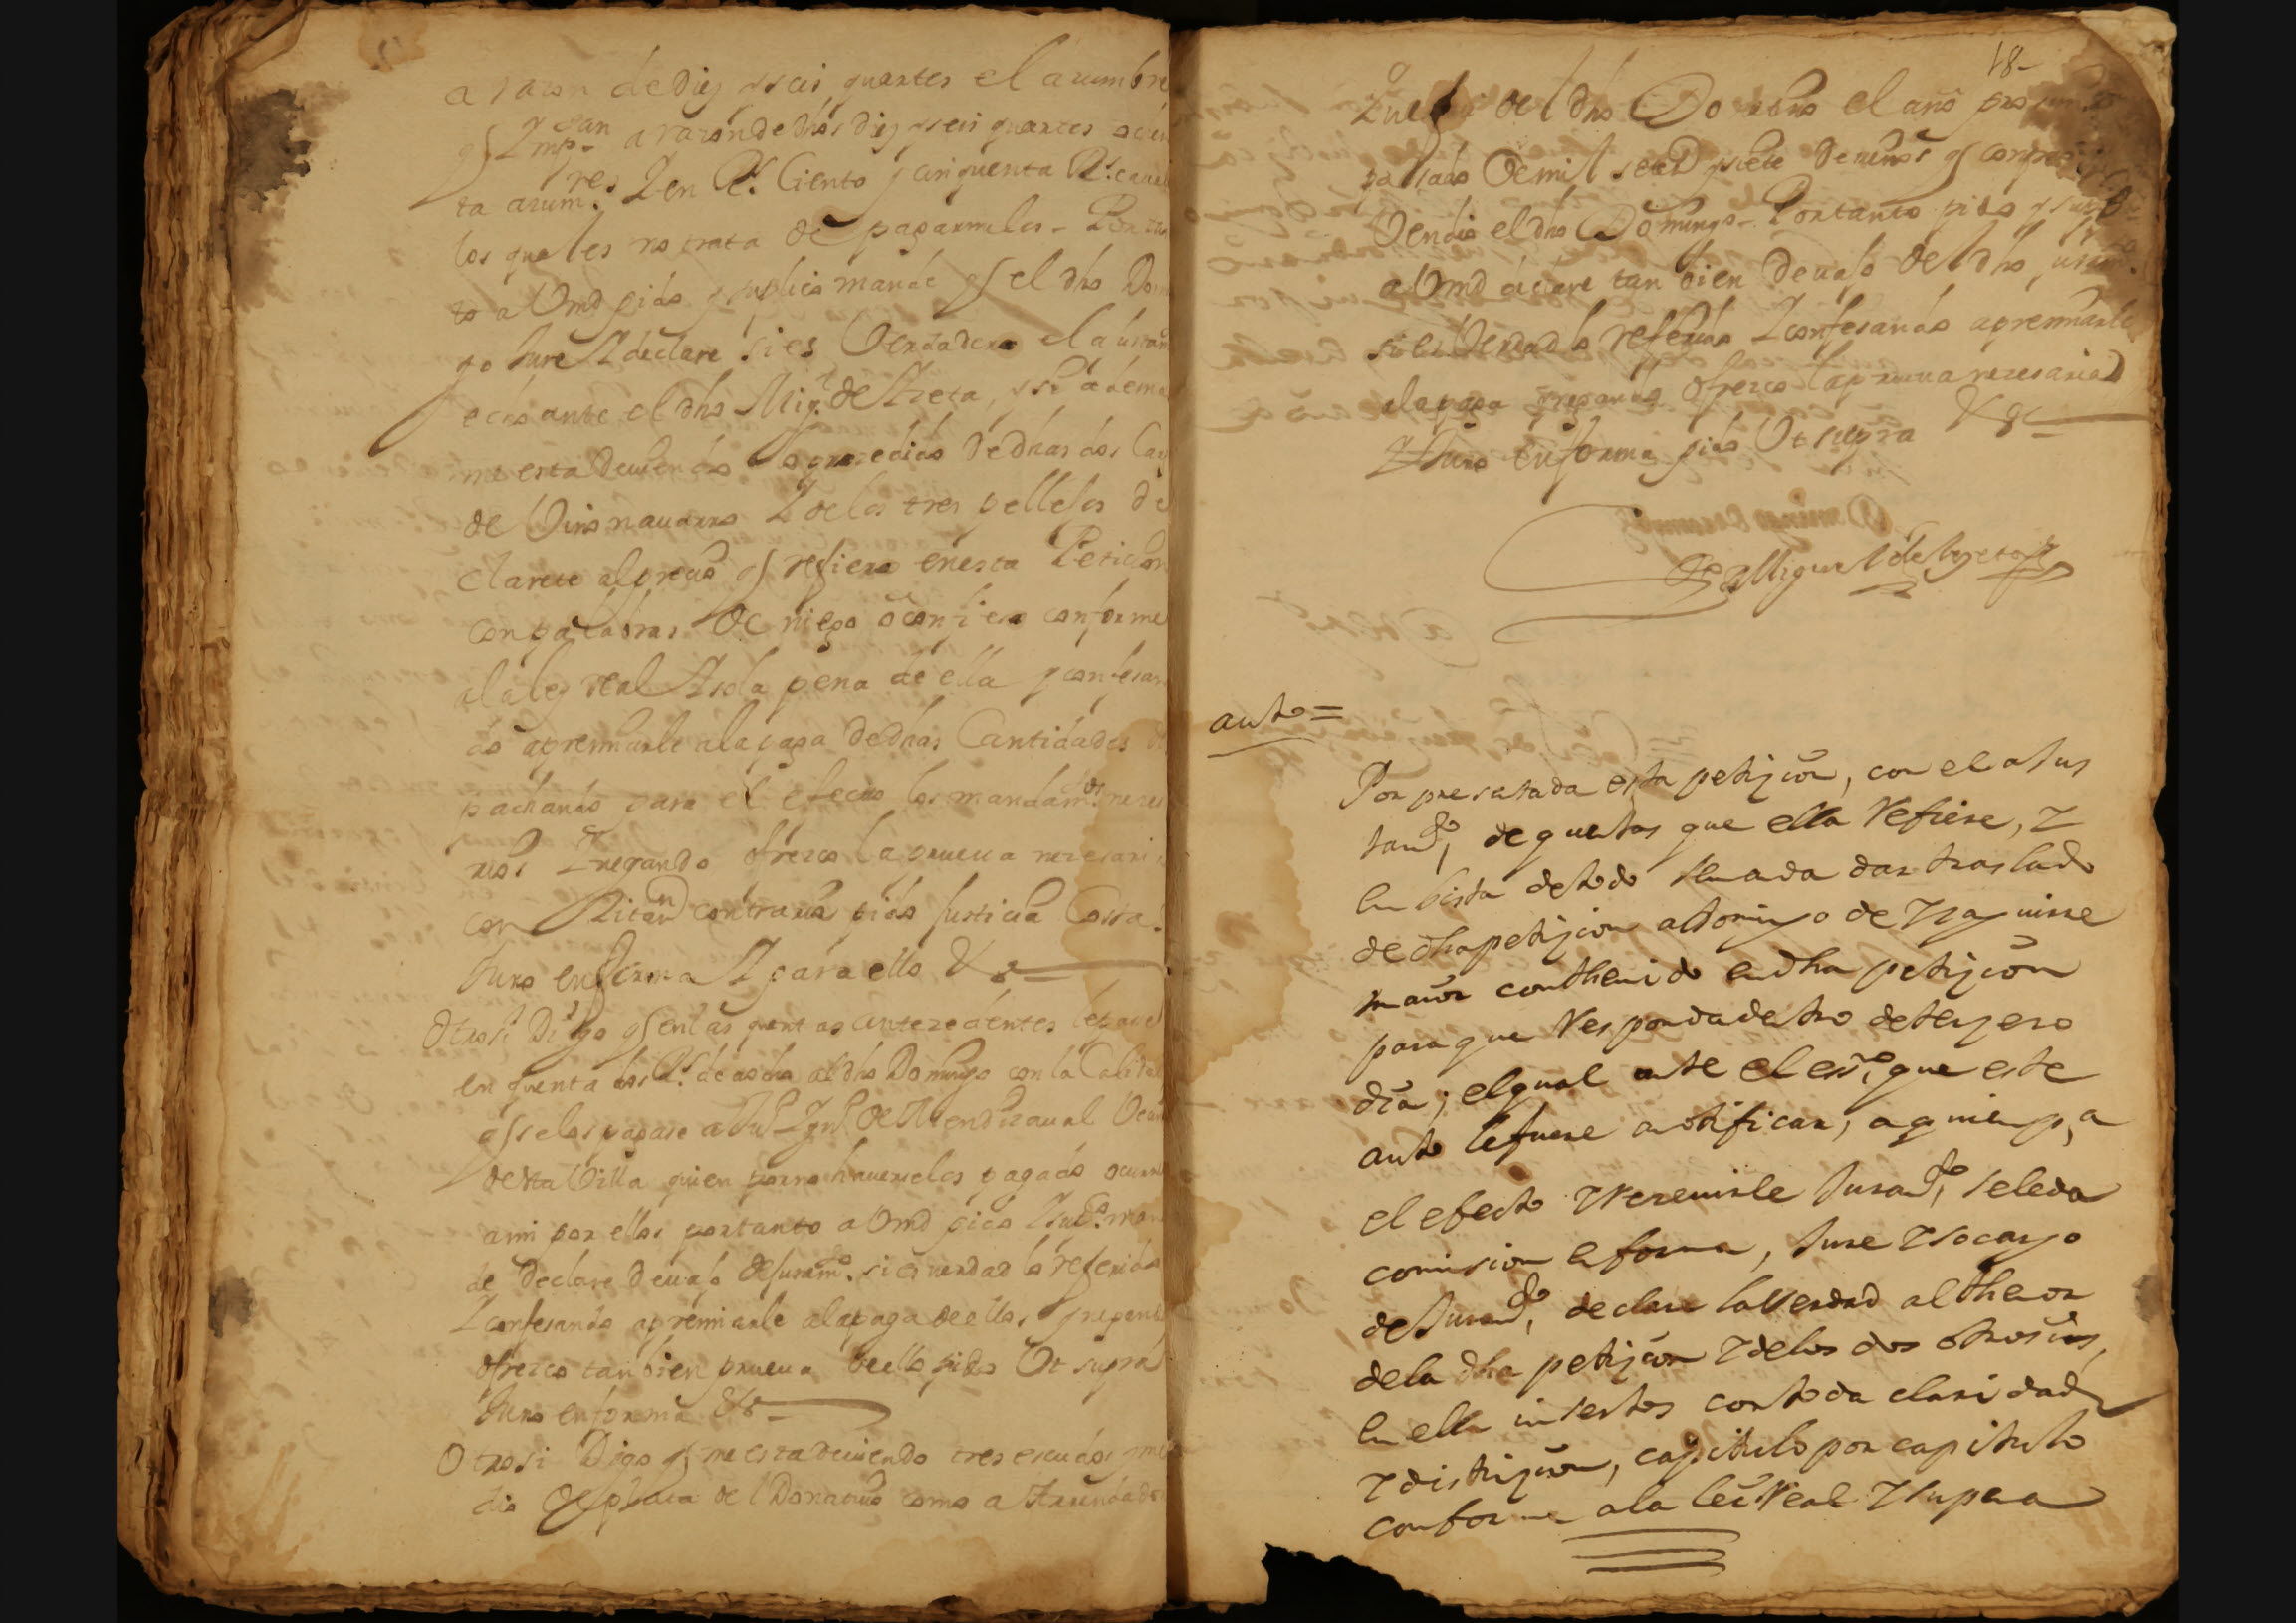 a razon de Diez y seis quartos el azumbre
q̃ Ymp.an a razon de dhos diez y seis quartos ochen
ta azum.res Y en R.s Ciento y cinquenta R.s
los quales no trata de pagarmelos - Por tan
to a Vmd pido y suplico mande q̃ el dho Domin
go Jure Y declare si es Verdadero el a
echo ante el dho Mig.l de Azeta, y si ademas
me esta deuiendo lo prozedido de dhas dos Car
de Vino nauarro Y de los tres pellejos de
Clarete al precio q̃ refiere en esta Peticion
con palabras de niego o confieso conforme
a la ley real Y so la pena de ella y confesan
do apremiarle a la paga de dhas Cantidades des
pachando para el efecto los mandam.tos nezes
rios Y negando ofrezco la prueua nezesaria
con Zitan contraria pido Justicia Costas
Juro en forma Y para ello &a
Otrosi Digo q̃ en las quentas antezedentes
en quenta dos R.s de a ocho al dho Domingo con la Calidad
q̃ se los pagase a Ju.o Ygn.o de Mendizaual Vezino
desta Villa quien por no hauerselos pagado
a mi por ellos por tanto a Vmd pido Y sup.co man
de Declare Deuajo de Juram.to si es verdad lo referido
Y confesando apremiarle a la paga de ellos, y negando
ofrezco tambien prueua de ello pido Vt supra
Juro en forma &a
Otrosi Digo q̃ me esta deuiendo tres escudos y me
dio de plata del Donatiuo como a Arrendador
18-
del dho Donatiuo el año proximo
passado de mil setez.s y siete
Vendio el dho Domingo - Por tanto pido y sup.co
a Vmd declare tan bien Deuajo del dho juram.to
si es Verdad lo referido Y confesando apremiarle
a la paga y negando ofrezco la prueua nezesaria
Y Juro en forma pido Vt supra &a
Miguel de Azeta
auto =
Por presentada esta petiçion, con el ajus
tam.to, de quentas que ella Refiere, Y
en bista de todo mandada dar traslado
de dha petiçion a Domingo de Yzaguirre
maior conthenido en dha petiçion
para que Responda dentro de terzero
dia; el qual ante el ess.no que este
auto le fuere a notificar, a quien p.a
el efecto Y Rezeuirle Juram.to, se le da
comision en forma, Jure Y so cargo
de Juram.to, declare la Verdad al thenor
de la dha petiçion Y de los dos otrosies,
en ella insertos con toda claridad
Y distinçion, capitulo por capitulo
conforme a la lei Real Y su pena